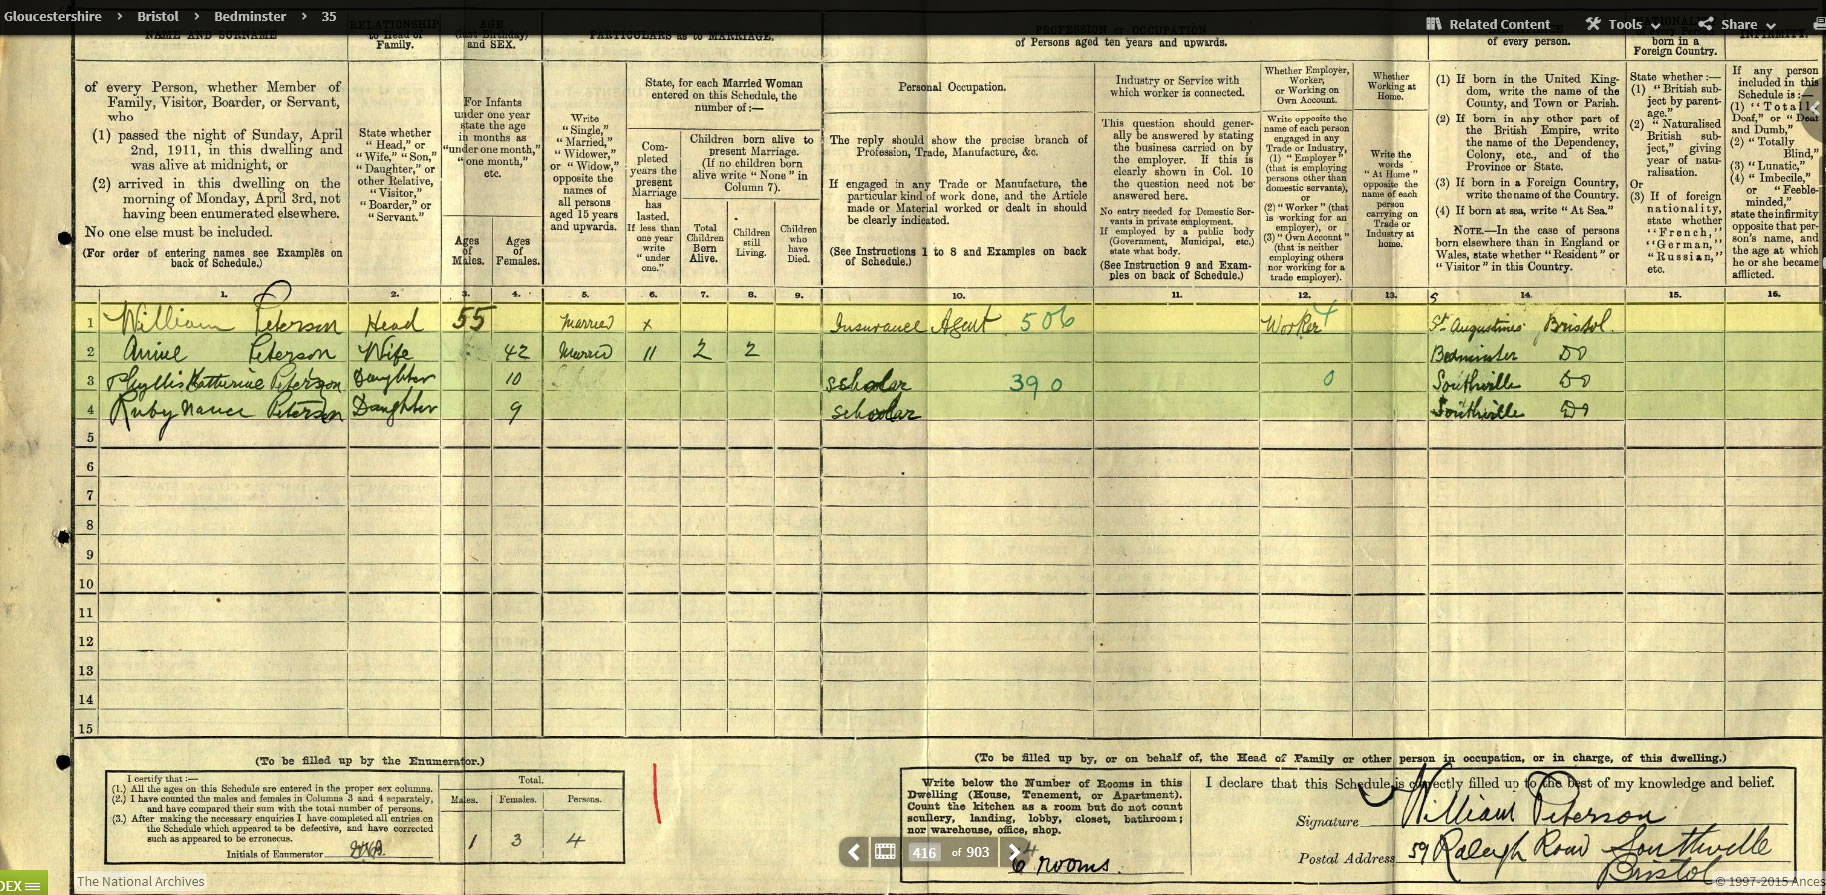 Gloucestershire > Bristol > Bedminster > 35
Related Content
Tools
Share
NAME AND SURNAME
RELATIONSHIP
to Head of
Family.
AGE
(last Birthday)
and SEX.
PARTICULARS as to MARRIAGE.
PROFESSION or OCCUPATION
of Persons aged ten years and upwards.
of every person.
born in a
Foreign Country.
INFIRMITY.
of every Person, whether Member of
Family, Visitor, Boarder, or Servant,
who
(1) passed the night of Sunday, April
2nd, 1911, in this dwelling and
was alive at midnight, or
(2) arrived in this dwelling on the
morning of Monday, April 3rd, not
having been enumerated elsewhere.
No one else must be included.
(For order of entering names see Examples on
back of Schedule.)
State whether
"Head," or
"Wife," "Son,"
"Daughter," or
other Relative,
"Visitor,"
"Boarder," or
"Servant."
For Infants
under one year
state the age
in months as
"under one month,"
"one month,"
etc.
Ages
of
Males.
Ages
of
Females.
Write
"Single,"
"Married,"
"Widower,"
or "Widow,"
opposite the
names of
all persons
aged 15 years
and upwards.
State, for each Married Woman
entered on this Schedule, the
number of:—
Com-
pleted
years the
present
Marriage
has
lasted.
If less than
one year
write
"under
one."
Children born alive to
present Marriage.
(If no children born
alive write "None" in
Column 7).
Total
Children
Born
Alive.
Children
still
Living.
Children
who
have
Died.
Personal Occupation.
The reply should show the precise branch of
Profession, Trade, Manufacture, &c.
If engaged in any Trade or Manufacture, the
particular kind of work done, and the Article
made or Material worked or dealt in should
be clearly indicated.
(See Instructions 1 to 8 and Examples on back
of Schedule.)
Industry or Service with
which worker is connected.
This question should gener-
ally be answered by stating
the business carried on by
the employer. If this is
clearly shown in Col. 10
the question need not be
answered here.
No entry needed for Domestic Ser-
vants in private employment.
If employed by a public body
(Government, Municipal, etc.)
state what body.
(See Instruction 9 and Exam-
ples on back of Schedule.)
Whether Employer,
Worker,
or Working on
Own Account.
Write opposite the
name of each person
engaged in any
Trade or Industry,
(1) "Employer"
(that is employing
persons other than
domestic servants),
or
(2) "Worker" (that
is working for an
employer), or
(3) "Own Account"
(that is neither
employing others
nor working for a
trade employer).
Whether
Working at
Home.
Write the
words
"At Home"
opposite the
name of each
person
carrying on
Trade or
Industry at
home.
(1) If born in the United King-
dom, write the name of the
County, and Town or Parish.
(2) If born in any other part of
the British Empire, write
the name of the Dependency,
Colony, etc., and of the
Province or State.
(3) If born in a Foreign Country,
write the name of the Country.
(4) If born at sea, write "At Sea."
NOTE.—In the case of persons
born elsewhere than in England or
Wales, state whether "Resident" or
"Visitor" in this Country.
State whether:—
(1) "British sub-
ject by parent-
age."
(2) "Naturalised
British sub-
ject," giving
year of natu-
ralisation.
Or
(3) If of foreign
nationality,
state whether
"French,"
"German,"
"Russian,"
etc.
If any person
included in this
Schedule is:—
(1) "Totally
Deaf," or "Deaf
and Dumb,"
(2) "Totally
Blind,"
(3) "Lunatic,"
(4) "Imbecile,"
or "Feeble-
minded,"
state the infirmity
opposite that per-
son's name, and
the age at which
he or she became
afflicted.
1. 2. 3. 4. 5. 6. 7. 8. 9. 10. 11. 12. 13. 14. 15. 16.
1 William Peterson Head 55 Married x Insurance Agent 506 Worker St Augustines Bristol.
2 Peterson Wife 42 Married 11 2 2 Bedminster Do
3 Phyllis Katherine Peterson Daughter 10 scholar 390 0 Southville Do
4 Ruby Peterson Daughter 9 scholar Southville Do
5
6
7
8
9
10
11
12
13
14
15
(To be filled up by the Enumerator.)
I certify that:—
(1.) All the ages on this Schedule are entered in the proper sex columns.
(2.) I have counted the males and females in Columns 3 and 4 separately,
and have compared their sum with the total number of persons.
(3.) After making the necessary enquiries I have completed all entries on
the Schedule which appeared to be defective, and have corrected
such as appeared to be erroneous.
Initials of Enumerator
Total.
Males. Females. Persons.
1 3 4
(To be filled up by, or on behalf of, the Head of Family or other person in occupation, or in charge, of this dwelling.)
Write below the Number of Rooms in this
Dwelling (House, Tenement, or Apartment).
Count the kitchen as a room but do not count
scullery, landing, lobby, closet, bathroom;
nor warehouse, office, shop.
6 rooms.
I declare that this Schedule is correctly filled up to the best of my knowledge and belief.
Signature William Peterson
Postal Address 59 Raleigh Road Southville
Bristol
416 of 903
DEX
The National Archives
© 1997-2015 Ances